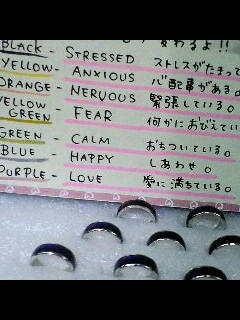 変わるよ!!
BLACK - STRESSED ストレスがたまって
YELLOW - ANXIOUS 心配事がある。
ORANGE - NERVOUS 緊張している。
YELLOW GREEN - FEAR 何かにおびえてい
GREEN - CALM おちついている。
BLUE - HAPPY しあわせ。
PURPLE - LOVE 愛に満ちている。